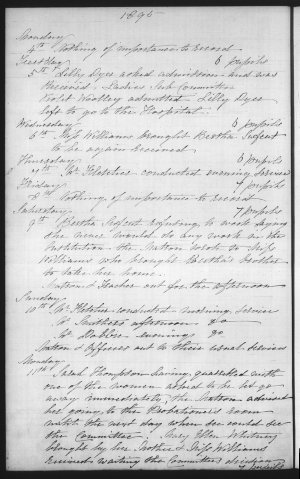 1895
Monday
4th Nothing of importance to record
Tuesday 6 pupils
5th Lilly Dyer asked admission and was
received. Ladies Sub Committee
Violet Woolley admitted. Lilly Dyer
left to go to the Hospital.
Wednesday 6 pupils
6th Miss Williams brought Bertha
to be again received
Thursday 6 pupils
7th Mr Fletcher conducted evening service
Friday 7 pupils
8th Nothing of importance to record
Saturday 7 pupils
9th Bertha refusing to work saying
she never would do any work in the
Institution the Matron wrote to Miss
Williams who brought Bertha's brother
to take her home.
Matron & Teacher out for the afternoon
Sunday
10th Mr Fletcher conducted morning service
Mr Smithers afternoon do
Mr evening do
Matron & Officers out to their usual services
Monday
11th Sarah Thompson having quarreled with
one of the women asked to be let go
away immediately, the Matron advised
her going to the Probationers room
until the next day when she could see
the Committee. Mary Ellen Whitney
brought by her Mother & Miss Williams
received waiting the Committee's decision
7 pupils